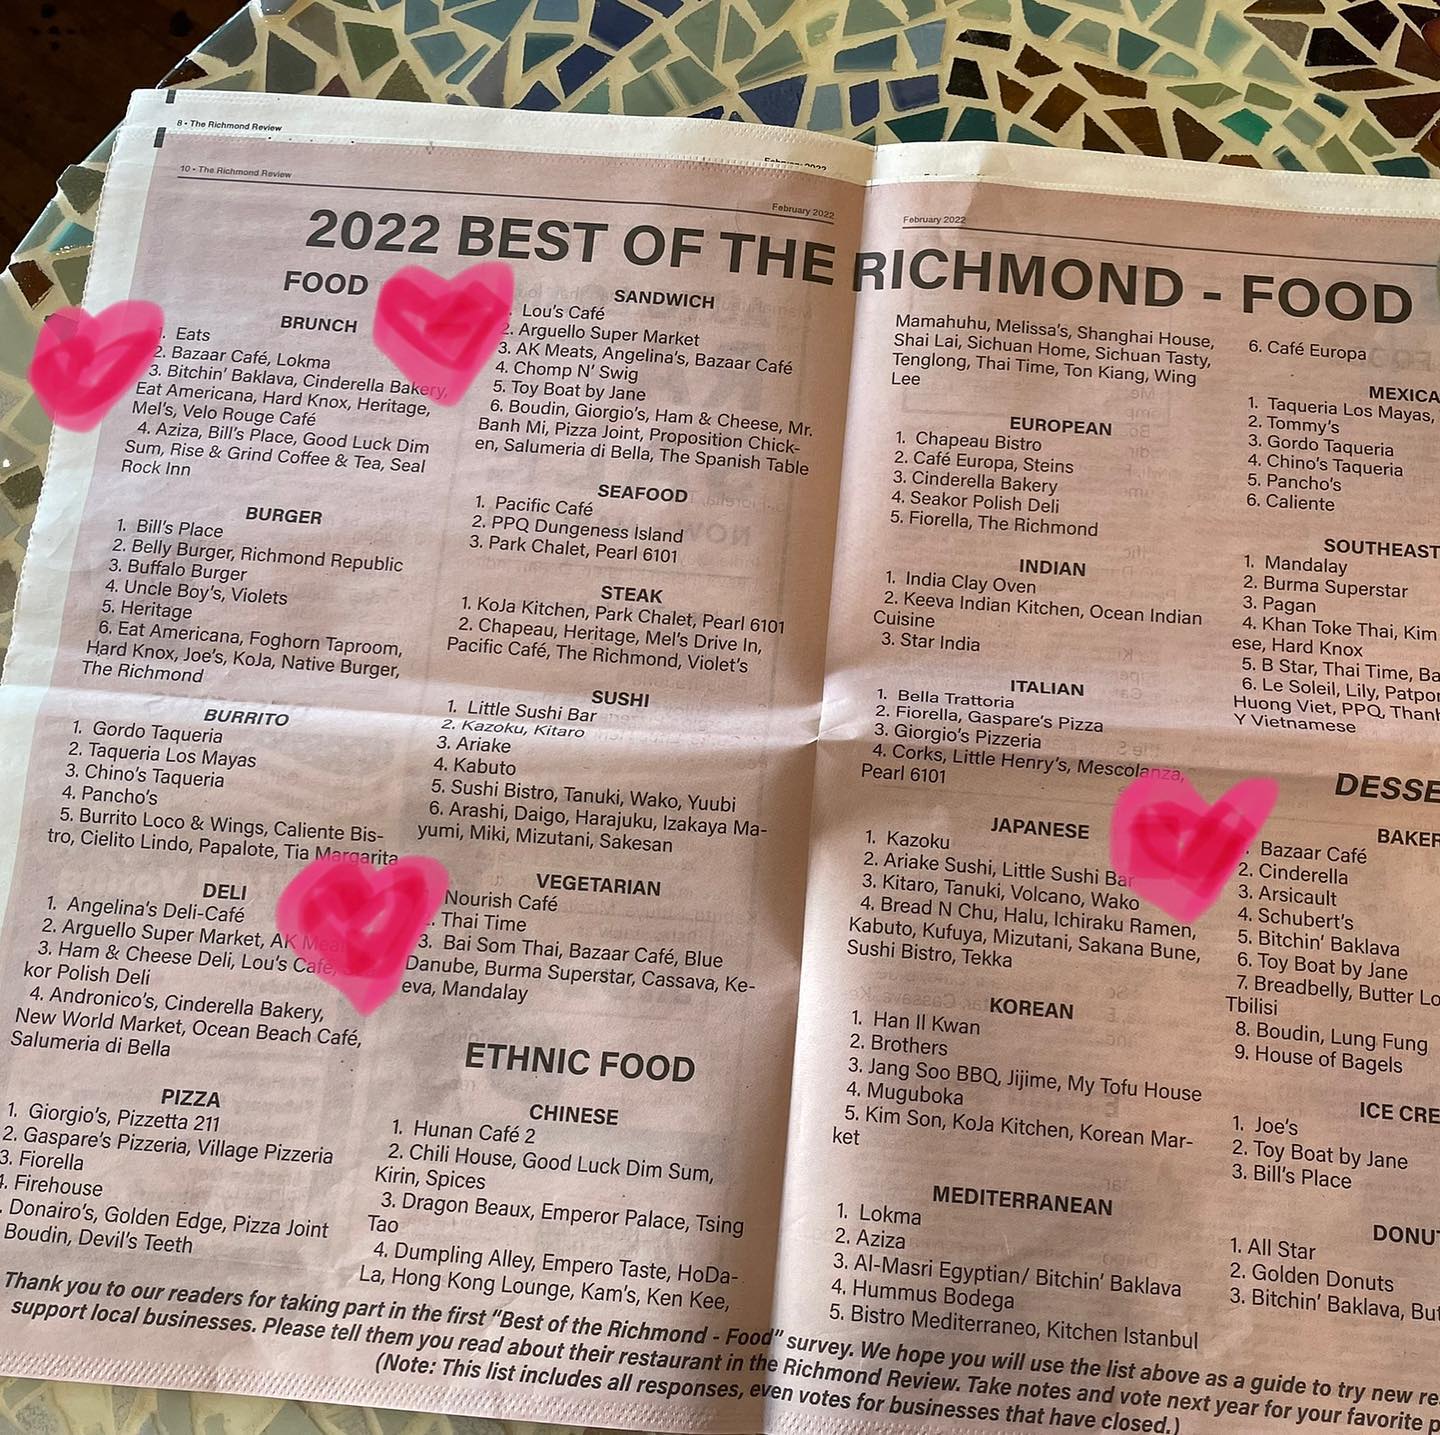 8 • The Richmond Review
February 2022
10 • The Richmond Review
February 2022
February 2022
2022 BEST OF THE RICHMOND - FOOD
FOOD
BRUNCH
1. Eats
2. Bazaar Café, Lokma
3. Bitchin' Baklava, Cinderella Bakery,
Eat Americana, Hard Knox, Heritage,
Mel's, Velo Rouge Café
4. Aziza, Bill's Place, Good Luck Dim
Sum, Rise & Grind Coffee & Tea, Seal
Rock Inn
BURGER
1. Bill's Place
2. Belly Burger, Richmond Republic
3. Buffalo Burger
4. Uncle Boy's, Violets
5. Heritage
6. Eat Americana, Foghorn Taproom,
Hard Knox, Joe's, KoJa, Native Burger,
The Richmond
BURRITO
1. Gordo Taqueria
2. Taqueria Los Mayas
3. Chino's Taqueria
4. Pancho's
5. Burrito Loco & Wings, Caliente Bis-
tro, Cielito Lindo, Papalote, Tia Margarita
DELI
1. Angelina's Deli-Café
2. Arguello Super Market, AK Meats
3. Ham & Cheese Deli, Lou's Café,
kor Polish Deli
4. Andronico's, Cinderella Bakery,
New World Market, Ocean Beach Café,
Salumeria di Bella
PIZZA
1. Giorgio's, Pizzetta 211
2. Gaspare's Pizzeria, Village Pizzeria
3. Fiorella
4. Firehouse
. Donairo's, Golden Edge, Pizza Joint
Boudin, Devil's Teeth
SANDWICH
. Lou's Café
2. Arguello Super Market
3. AK Meats, Angelina's, Bazaar Café
4. Chomp N' Swig
5. Toy Boat by Jane
6. Boudin, Giorgio's, Ham & Cheese, Mr.
Banh Mi, Pizza Joint, Proposition Chick-
en, Salumeria di Bella, The Spanish Table
SEAFOOD
1. Pacific Café
2. PPQ Dungeness Island
3. Park Chalet, Pearl 6101
STEAK
1. KoJa Kitchen, Park Chalet, Pearl 6101
2. Chapeau, Heritage, Mel's Drive In,
Pacific Café, The Richmond, Violet's
SUSHI
1. Little Sushi Bar
2. Kazoku, Kitaro
3. Ariake
4. Kabuto
5. Sushi Bistro, Tanuki, Wako, Yuubi
6. Arashi, Daigo, Harajuku, Izakaya Ma-
yumi, Miki, Mizutani, Sakesan
VEGETARIAN
Nourish Café
. Thai Time
3. Bai Som Thai, Bazaar Café, Blue
Danube, Burma Superstar, Cassava, Ke-
eva, Mandalay
ETHNIC FOOD
CHINESE
1. Hunan Café 2
2. Chili House, Good Luck Dim Sum,
Kirin, Spices
3. Dragon Beaux, Emperor Palace, Tsing
Tao
4. Dumpling Alley, Empero Taste, HoDa-
La, Hong Kong Lounge, Kam's, Ken Kee,
Mamahuhu, Melissa's, Shanghai House,
Shai Lai, Sichuan Home, Sichuan Tasty,
Tenglong, Thai Time, Ton Kiang, Wing
Lee
EUROPEAN
1. Chapeau Bistro
2. Café Europa, Steins
3. Cinderella Bakery
4. Seakor Polish Deli
5. Fiorella, The Richmond
INDIAN
1. India Clay Oven
2. Keeva Indian Kitchen, Ocean Indian
Cuisine
3. Star India
ITALIAN
1. Bella Trattoria
2. Fiorella, Gaspare's Pizza
3. Giorgio's Pizzeria
4. Corks, Little Henry's, Mescolanza,
Pearl 6101
JAPANESE
1. Kazoku
2. Ariake Sushi, Little Sushi Bar
3. Kitaro, Tanuki, Volcano, Wako
4. Bread N Chu, Halu, Ichiraku Ramen,
Kabuto, Kufuya, Mizutani, Sakana Bune,
Sushi Bistro, Tekka
KOREAN
1. Han Il Kwan
2. Brothers
3. Jang Soo BBQ, Jijime, My Tofu House
4. Muguboka
5. Kim Son, KoJa Kitchen, Korean Mar-
ket
MEDITERRANEAN
1. Lokma
2. Aziza
3. Al-Masri Egyptian/ Bitchin' Baklava
4. Hummus Bodega
5. Bistro Mediterraneo, Kitchen Istanbul
6. Café Europa
MEXICA
1. Taqueria Los Mayas,
2. Tommy's
3. Gordo Taqueria
4. Chino's Taqueria
5. Pancho's
6. Caliente
SOUTHEAST
1. Mandalay
2. Burma Superstar
3. Pagan
4. Khan Toke Thai, Kim
ese, Hard Knox
5. B Star, Thai Time, Ba
6. Le Soleil, Lily, Patpor
Huong Viet, PPQ, Thanh
Y Vietnamese
DESSE
BAKER
. Bazaar Café
2. Cinderella
3. Arsicault
4. Schubert's
5. Bitchin' Baklava
6. Toy Boat by Jane
7. Breadbelly, Butter Lo
Tbilisi
8. Boudin, Lung Fung
9. House of Bagels
ICE CRE
1. Joe's
2. Toy Boat by Jane
3. Bill's Place
DONUT
1. All Star
2. Golden Donuts
3. Bitchin' Baklava, But
Thank you to our readers for taking part in the first "Best of the Richmond - Food" survey. We hope you will use the list above as a guide to try new re
support local businesses. Please tell them you read about their restaurant in the Richmond Review. Take notes and vote next year for your favorite p
(Note: This list includes all responses, even votes for businesses that have closed.)